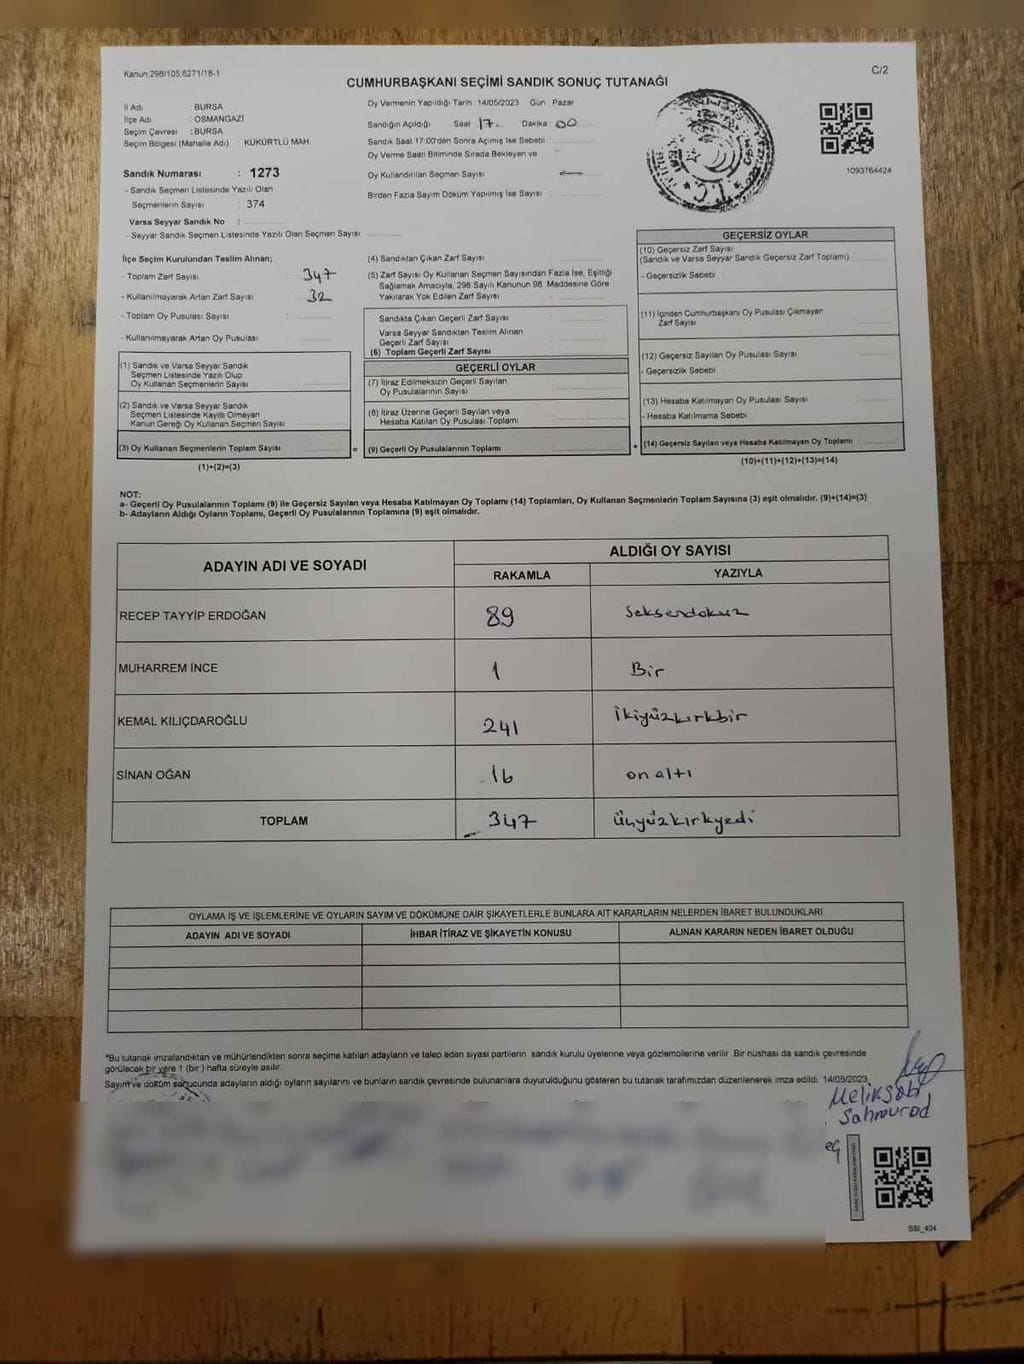 Kanun,298/105,6271/18-1
C/2
CUMHURBAŞKANI SEÇİMİ SANDIK SONUÇ TUTANAĞI
İl Adı : BURSA
İlçe Adı : OSMANGAZİ
Seçim Çevresi : BURSA
Seçim Bölgesi (Mahalle Adı) : KÜKÜRTLÜ MAH.
Sandık Numarası : 1273
- Sandık Seçmen Listesinde Yazılı Olan
Seçmenlerin Sayısı : 374
Varsa Seyyar Sandık No :
- Seyyar Sandık Seçmen Listesinde Yazılı Olan Seçmen Sayısı
Oy Vermenin Yapıldığı Tarih : 14/05/2023 Gün Pazar
Sandığın Açıldığı Saat 17. Dakika 00
Sandık Saat 17:00'den Sonra Açılmış İse Sebebi
Oy Verme Saati Bitiminde Sırada Bekleyen ve
Oy Kullandırılan Seçmen Sayısı
Birden Fazla Sayım Döküm Yapılmış İse Sayısı
1093764424
İlçe Seçim Kurulundan Teslim Alınan;
- Toplam Zarf Sayısı : 347
- Kullanılmayarak Artan Zarf Sayısı : 32
- Toplam Oy Pusulası Sayısı :
- Kullanılmayarak Artan Oy Pusulası :
(1) Sandık ve Varsa Seyyar Sandık
Seçmen Listesinde Yazılı Olup
Oy Kullanan Seçmenlerin Sayısı
(2) Sandık ve Varsa Seyyar Sandık
Seçmen Listesinde Kayıtlı Olmayan
Kanun Gereği Oy Kullanan Seçmen Sayısı
(3) Oy Kullanan Seçmenlerin Toplam Sayısı
(1)+(2)=(3)
=
(4) Sandıktan Çıkan Zarf Sayısı
(5) Zarf Sayısı Oy Kullanan Seçmen Sayısından Fazla İse, Eşitliği
Sağlamak Amacıyla, 298 Sayılı Kanunun 98. Maddesine Göre
Yakılarak Yok Edilen Zarf Sayısı
Sandıkta Çıkan Geçerli Zarf Sayısı
Varsa Seyyar Sandıktan Teslim Alınan
Geçerli Zarf Sayısı
(6) Toplam Geçerli Zarf Sayısı
GEÇERLİ OYLAR
(7) İtiraz Edilmeksizin Geçerli Sayılan
Oy Pusulalarının Sayısı
(8) İtiraz Üzerine Geçerli Sayılan veya
Hesaba Katılan Oy Pusulası Toplamı
(9) Geçerli Oy Pusulalarının Toplamı
+
GEÇERSİZ OYLAR
(10) Geçersiz Zarf Sayısı
(Sandık ve Varsa Seyyar Sandık Geçersiz Zarf Toplamı)
- Geçersizlik Sebebi
(11) İçinden Cumhurbaşkanı Oy Pusulası Çıkmayan
Zarf Sayısı
(12) Geçersiz Sayılan Oy Pusulası Sayısı
- Geçersizlik Sebebi
(13) Hesaba Katılmayan Oy Pusulası Sayısı
- Hesaba Katılmama Sebebi
(14) Geçersiz Sayılan veya Hesaba Katılmayan Oy Toplamı
(10)+(11)+(12)+(13)=(14)
NOT:
a- Geçerli Oy Pusulalarının Toplamı (9) ile Geçersiz Sayılan veya Hesaba Katılmayan Oy Toplamı (14) Toplamları, Oy Kullanan Seçmenlerin Toplam Sayısına (3) eşit olmalıdır. (9)+(14)=(3)
b- Adayların Aldığı Oyların Toplamı, Geçerli Oy Pusulalarının Toplamına (9) eşit olmalıdır.
ADAYIN ADI VE SOYADI ALDIĞI OY SAYISI
RAKAMLA YAZIYLA
RECEP TAYYİP ERDOĞAN 89 Seksendokuz
MUHARREM İNCE 1 Bir
KEMAL KILIÇDAROĞLU 241 İkiyüzkırkbir
SİNAN OĞAN 16 onaltı
TOPLAM 347 Üçyüzkırkyedi
OYLAMA İŞ VE İŞLEMLERİNE VE OYLARIN SAYIM VE DÖKÜMÜNE DAİR ŞİKAYETLERLE BUNLARA AİT KARARLARIN NELERDEN İBARET BULUNDUKLARI
ADAYIN ADI VE SOYADI İHBAR İTİRAZ VE ŞİKAYETİN KONUSU ALINAN KARARIN NEDEN İBARET OLDUĞU
*Bu tutanak imzalandıktan ve mühürlendikten sonra seçime katılan adayların ve talep eden siyasi partilerin sandık kurulu üyelerine veya gözlemcilerine verilir. Bir nüshası da sandık çevresinde
görülecek bir yere 1 (bir ) hafta süreyle asılır.
Sayım ve döküm sonucunda adayların aldığı oyların sayılarını ve bunların sandık çevresinde bulunanlara duyurulduğunu gösteren bu tutanak tarafımızdan düzenlenerek imza edildi. 14/05/2023
SSI_404